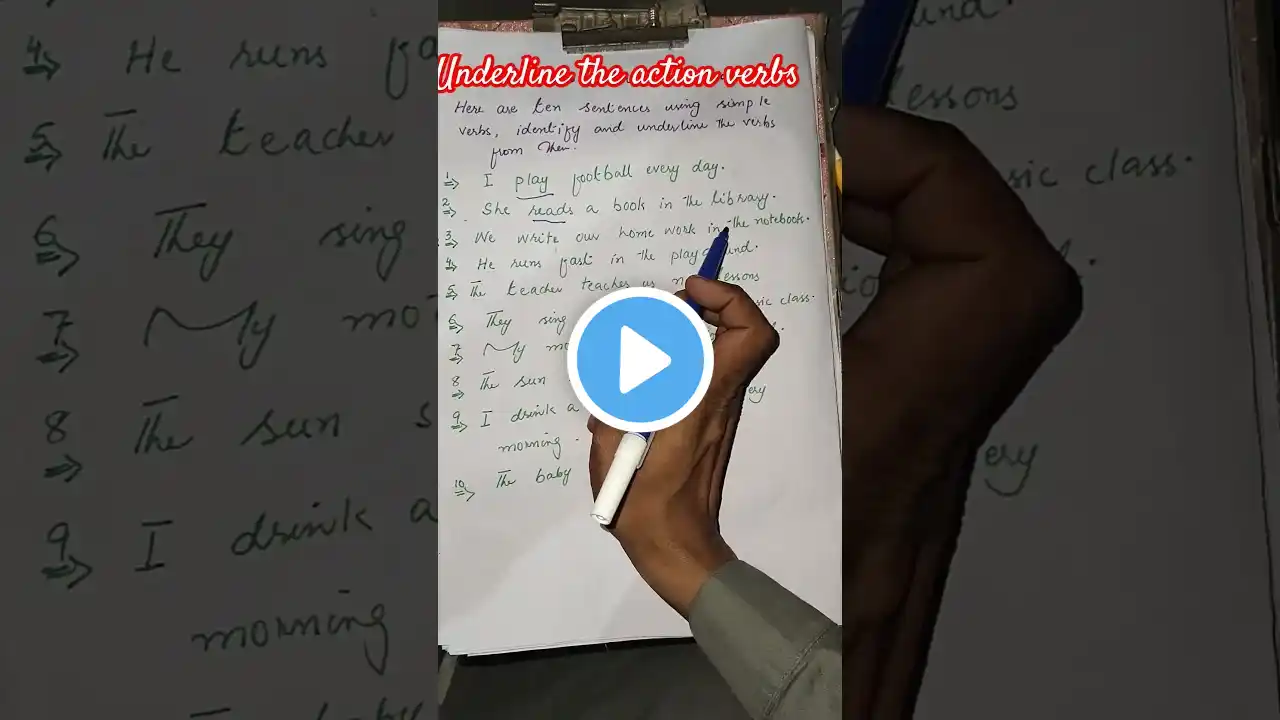 Underline the action verbs
Here are ten sentences using simple
verbs, identify and underline the verbs
from them.
1 I play football every day.
2 She reads a book in the library.
3 We write our home work in the notebook.
4 He runs fast in the playground.
5 The teacher teaches us lessons
6 They sing sic class.
7 My mo
8 The sun
9 I drink a ery
morning.
10 The baby